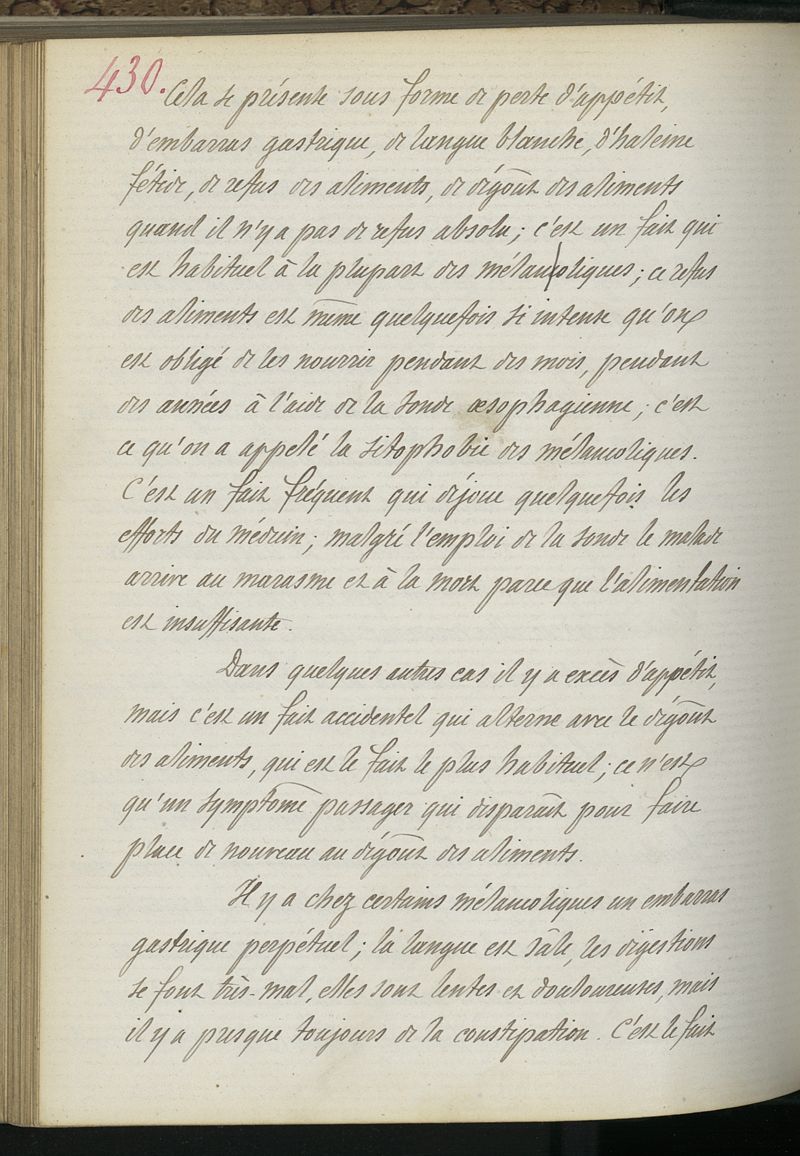 430.
Cela se présente sous forme de perte d'appétit,
d'embarras gastrique, de langue blanche, d'haleine
fétide, de refus des aliments, de dégoût des aliments
quand il n'y a pas de refus absolu; c'est un fait qui
est habituel à la plupart des mélancoliques; ce refus
des aliments est même quelquefois si intense qu'on
est obligé de les nourrir pendant des mois, pendant
des années à l'aide de la sonde œsophagienne; c'est
ce qu'on a appelé la sitophobie des mélancoliques.
C'est un fait fréquent qui déjoue quelquefois les
efforts du médecin; malgré l'emploi de la sonde le malade
arrive au marasme et à la mort parce que l'alimentation
est insuffisante.
Dans quelques autres cas il y a excès d'appétit,
mais c'est un fait accidentel qui alterne avec le dégoût
des aliments, qui est le fait le plus habituel; ce n'est
qu'un symptôme passager qui disparaît pour faire
place de nouveau au dégoût des aliments.
Il y a chez certains mélancoliques un embarras
gastrique perpétuel; la langue est sâle, les digestions
se font très-mal, elles sont lentes et douloureuses, mais
il y a presque toujours de la constipation. C'est le fait